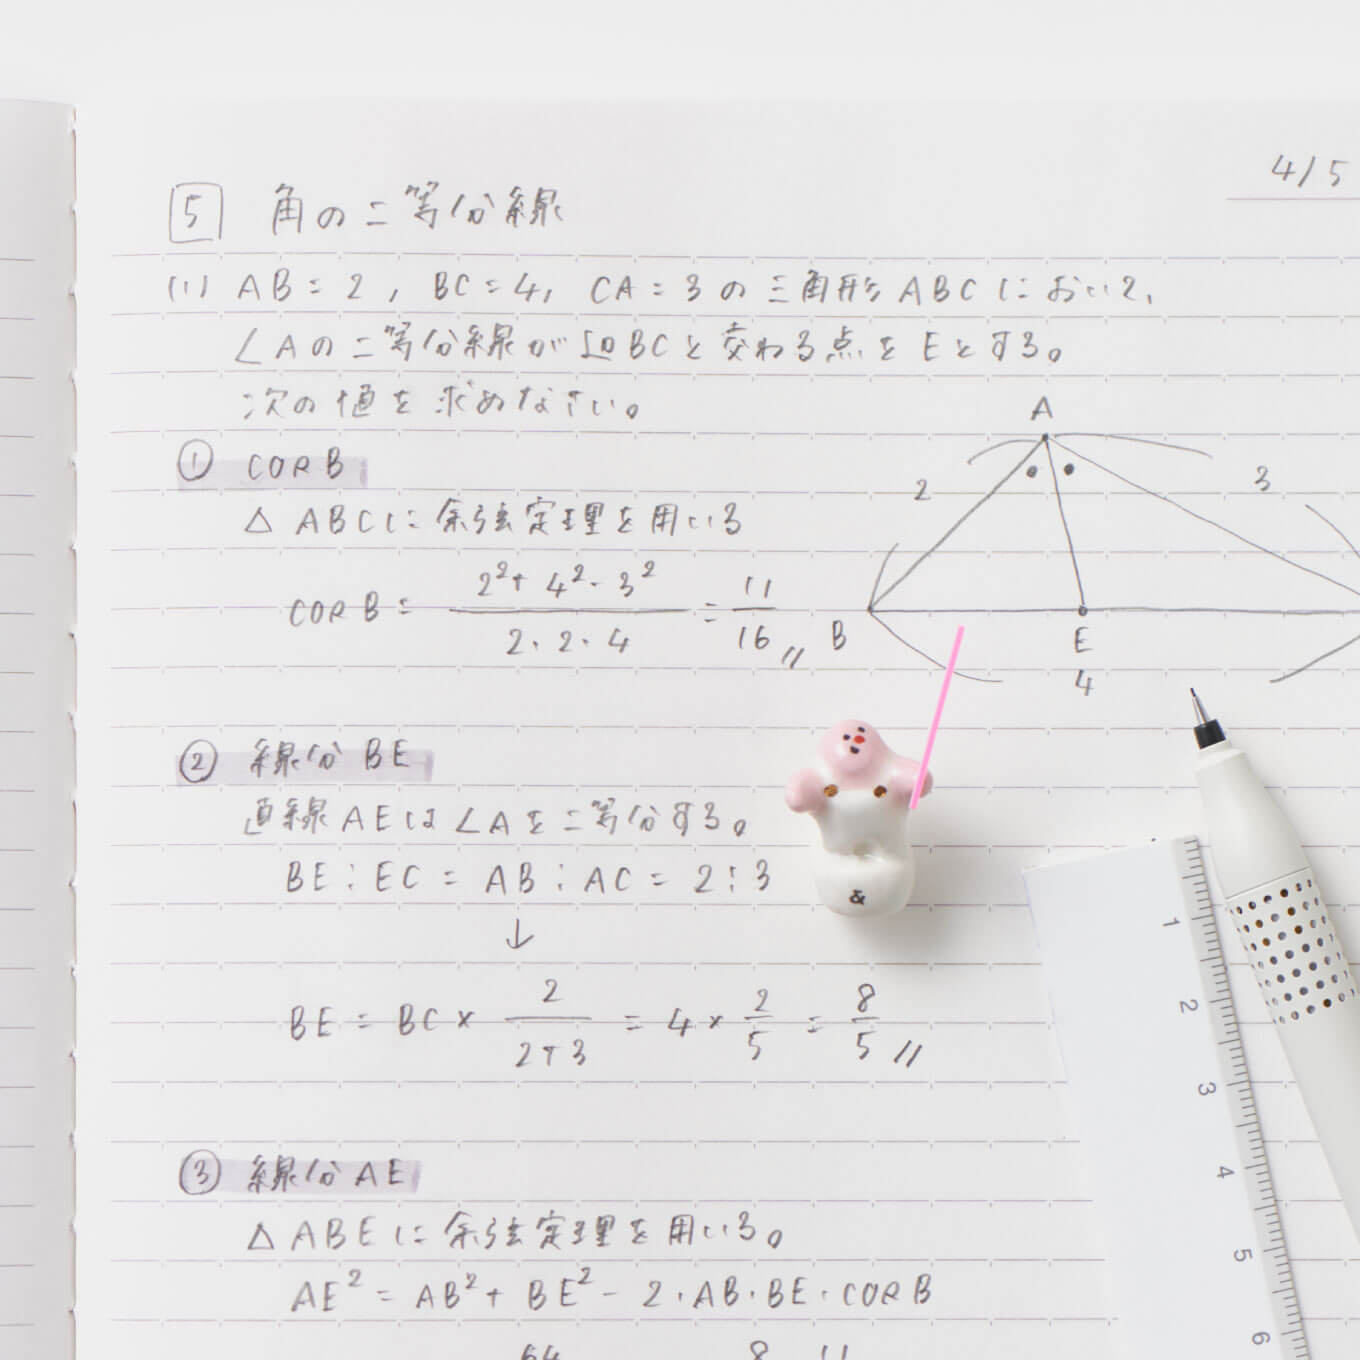 4/5
5 角の二等分線
(1) AB=2, BC=4, CA=3の三角形ABCにおいて、
∠Aの二等分線が辺BCと交わる点をEとする。
次の値を求めなさい。
① cosB
△ABCに余弦定理を用いる
cosB = (2²+4²-3²)/(2・2・4) = 11/16 //
A
2
3
B
E
4
② 線分BE
直線AEは∠Aを二等分する。
BE:EC = AB:AC = 2:3
↓
BE = BC × 2/(2+3) = 4 × 2/5 = 8/5 //
③ 線分AE
△ABEに余弦定理を用いる。
AE² = AB² + BE² - 2・AB・BE・cosB
64 8 11
&
1
2
3
4
5
6